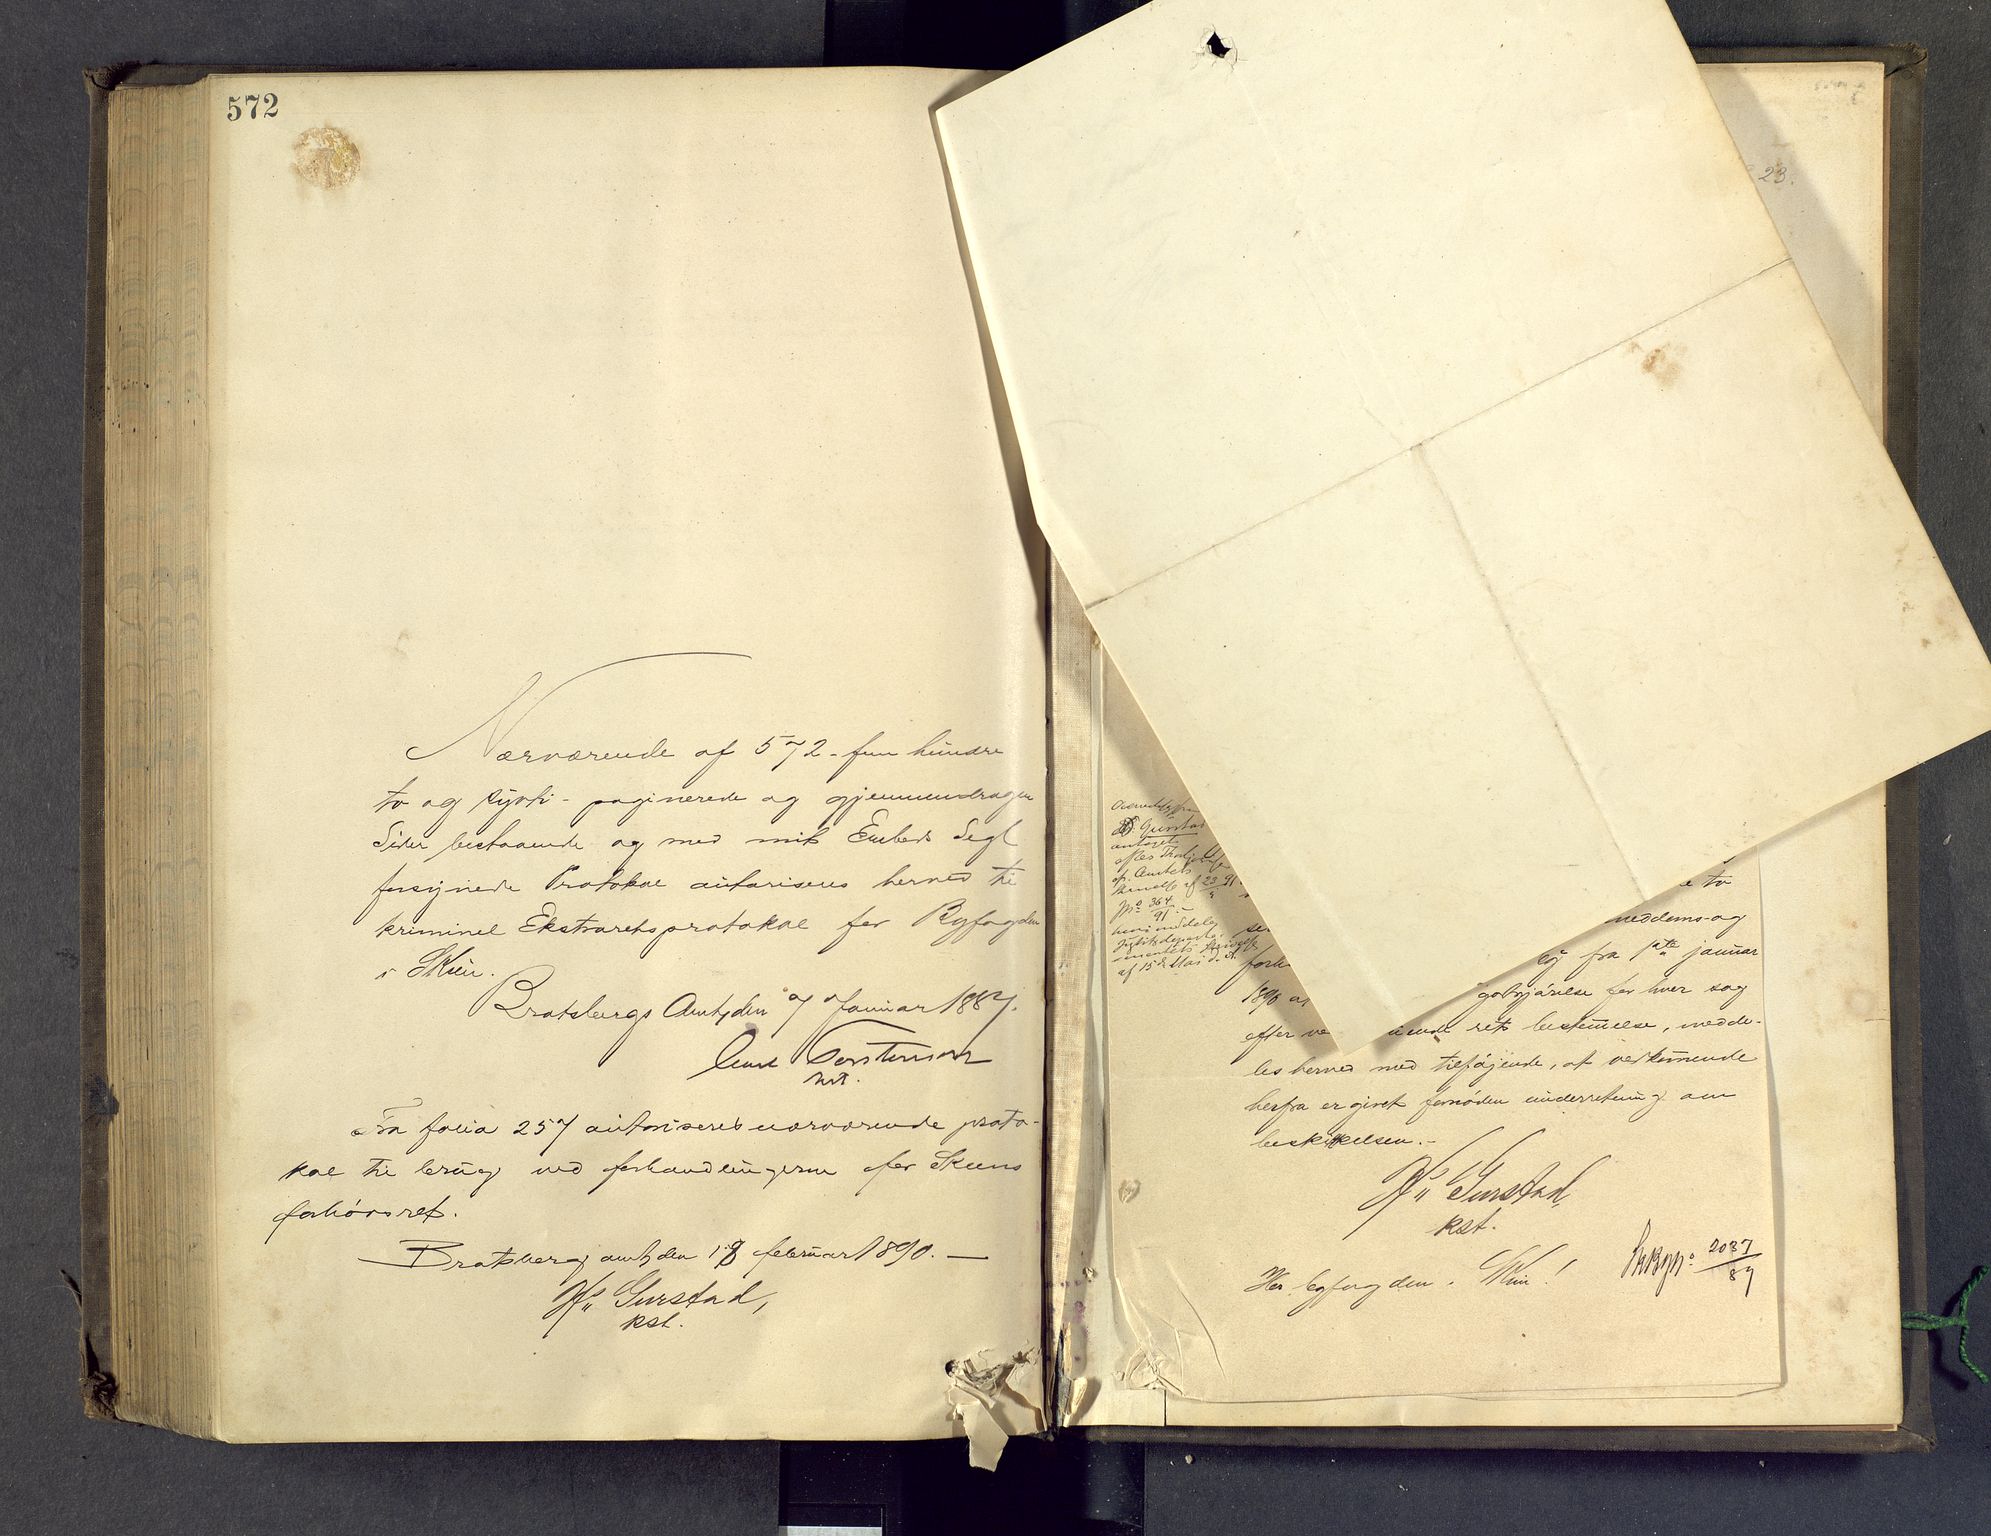 572
Nærværende af 572 - fem hundre
to og sytti - paginerede og gjennemdragne
Sider bestaaende og med mit Embeds Segl
forsynede Protokol autoriseres herved til
kriminel Ekstraretsprotokol for Byfogden
i Skien.
Bratsbergs Amt, den 7 Januar 1887.
kst.
Fra folio 257 autoriseres nærværende proto-
kol til brug ved forhandlingerne for Skiens
forhørsret.
Bratsberg amt, den 18 februar 1890. —
Hs Gurstad,
kst.
23.
Gurstad
antaget
efter
af 23/5 91
Jno 364/91. -
meddelt
Justitsdeparte-
mentets Skrivelse
af 15de Mai d. A.
e to
meddoms- og
fra 1ste januar
1890 af godtgjørelse for hver sag
efter ve ende rets bestemmelse, medde-
les herved med tilføiende, at vedkommende
herfra er givet fornøden underretning om
beskikkelsen. -
Hs Gurstad
kst.
Hr. byfogden. Skien!
2037/89